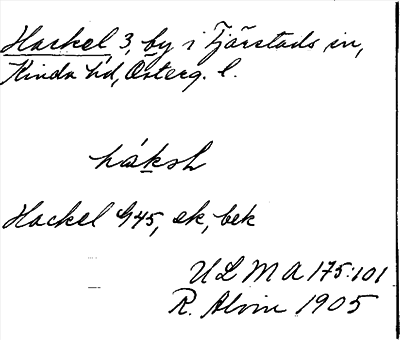 Hackel 3, by i Tjärstads sn,
Kinda hd, Österg. l.
Hackel G45, ek, bek
ULMA 175:101
R. Alvin 1905